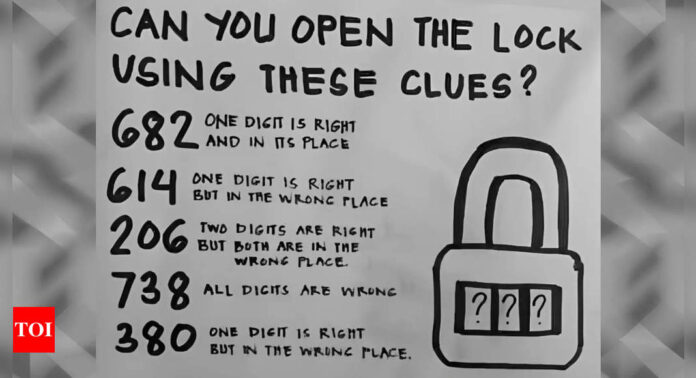 CAN YOU OPEN THE LOCK
USING THESE CLUES?
682 ONE DIGIT IS RIGHT
AND IN ITS PLACE
614 ONE DIGIT IS RIGHT
BUT IN THE WRONG PLACE
206 TWO DIGITS ARE RIGHT
BUT BOTH ARE IN THE
WRONG PLACE.
738 ALL DIGITS ARE WRONG
380 ONE DIGIT IS RIGHT
BUT IN THE WRONG PLACE.
? ? ?
TOI